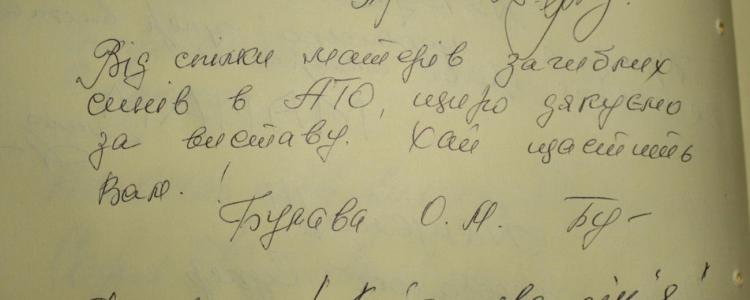 Від спілки матерів загиблих
синів в АТО, щиро дякуємо
за виставу. Хай щастить
Вам. !
О. М. Бу-